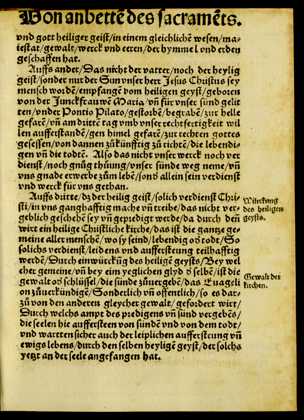 Von anbettē des sacramēts.
vnd gott heyliger geist/in einem gleichlichē wesen/ma
iestat/gewalt/werck vnd eeren/der hymmel vnd erden
geschaffen hat.
Auffs ander/Das nicht der vatter/noch der heylig
geist/sonder nur der Sun vnser herr Jesus Christus sey
mensch wordē/empfangen vom heiligen geyst/geboren
von der Junckfrauwē Maria/vñ für vnser sünd gelit
ten/vnder Pontio Pilato/gestorbē/begrabē/zur helle
gefarē/vñ am dritten tag vmb vnser rechtfertigkeit wil
len aufferstandē/gen himel gefarē/zur rechten gottes
gesessen/von dannen zükünfftig zü richtē/die lebendi-
gen vñ die todtē. Also das nicht vnser werck noch ver
dienst/noch gnüg thüung/vnser sünde weg neme/vñ
vns gnade erwerbe zům lebē/sonð allein sein verdienst
vnd werck für vns gethan.
Auffs dritte/das der heilig geist/solich verdienst Chri
sti/in vns gangkhafftig mache vñ treibe/das nicht ver
geblich geschehē sey vñ gepredigt werde/da durch deñ
wirt ein heilige Christliche kirche/das ist die gantze ge
meine aller menschē/wo sy seind/lebendig oð todt/So
solichs verdiensts/leidens vnd aufferstüng teilhafftig
werdē/Durch einwürckūg des heiligē geysts/Bey wel
cher gemeine/vñ bey eim yeglichen glyd ð selbē/ist die
gewalt oð schlüssel/die sünde zůuergebē/das Euageli
on zůuerkündigē/Sonderlich vñ offentlich/so es dar-
zů von den anderen gleycher gewalt/gefordert wirt/
Durch welchs ampt des predigens vñ sünd vergebēs/
die seelen hie aufferstēen von sündē vnd von dem todt/
vnd wartten sicher auch der leiplichen aufferstüng vñ
ewigs lebens/durch den selben heyligē geyst/der solchs
yetzt an der seele angefangen hat.
Würckung
des heiligen
geysts.
Gewalt der
kirchen.